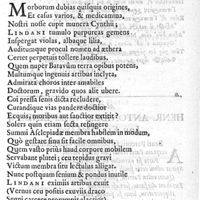 Morborum dubias quisquis origines,
Et casus varios, & medicamina,
Nosti nosse cupit munera Cynthii;
LINDANI tumulo purpureas gemens
Inspergat violas, albaque lilia,
Auditumque procul nomen ad æthera
Certet perpetuis tollere laudibus.
Quem nuper Batavûm terra opibus potens,
Multumque ingenuis artibus inclyta,
Admirata choros inter amabiles
Doctorum, gravido quos alit ubere.
Coi pressa senis dicta recludere,
Curandique vias pandere doctior
Ecquis, moribus aut sanctior extitit?
Solers quin etiam secta refingere
Summi Asclepiadæ membra habilem in modum,
Quò gestare sinu sit facile omnibus,
Quem vasto prisci hand corpore mobilem
Servabant plutei; ceu tepidus gravi
Victum membra situ lectulus alligat.
Nunc postquam senium & pondus inutile
LINDANI eximiis artibus exuit
(Vernus ceu positis exuviis draco